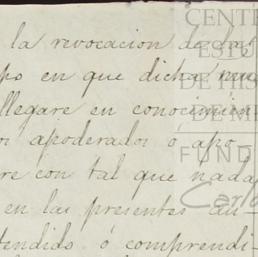 la revocacion de la
po en que dicha
llegare en conocimien
os apoderados ó apo-
re con tal que nada
en las presentes au-
tendido ó comprendi-
CENT
EST
DE HIS
DE M
FUND
Carlo